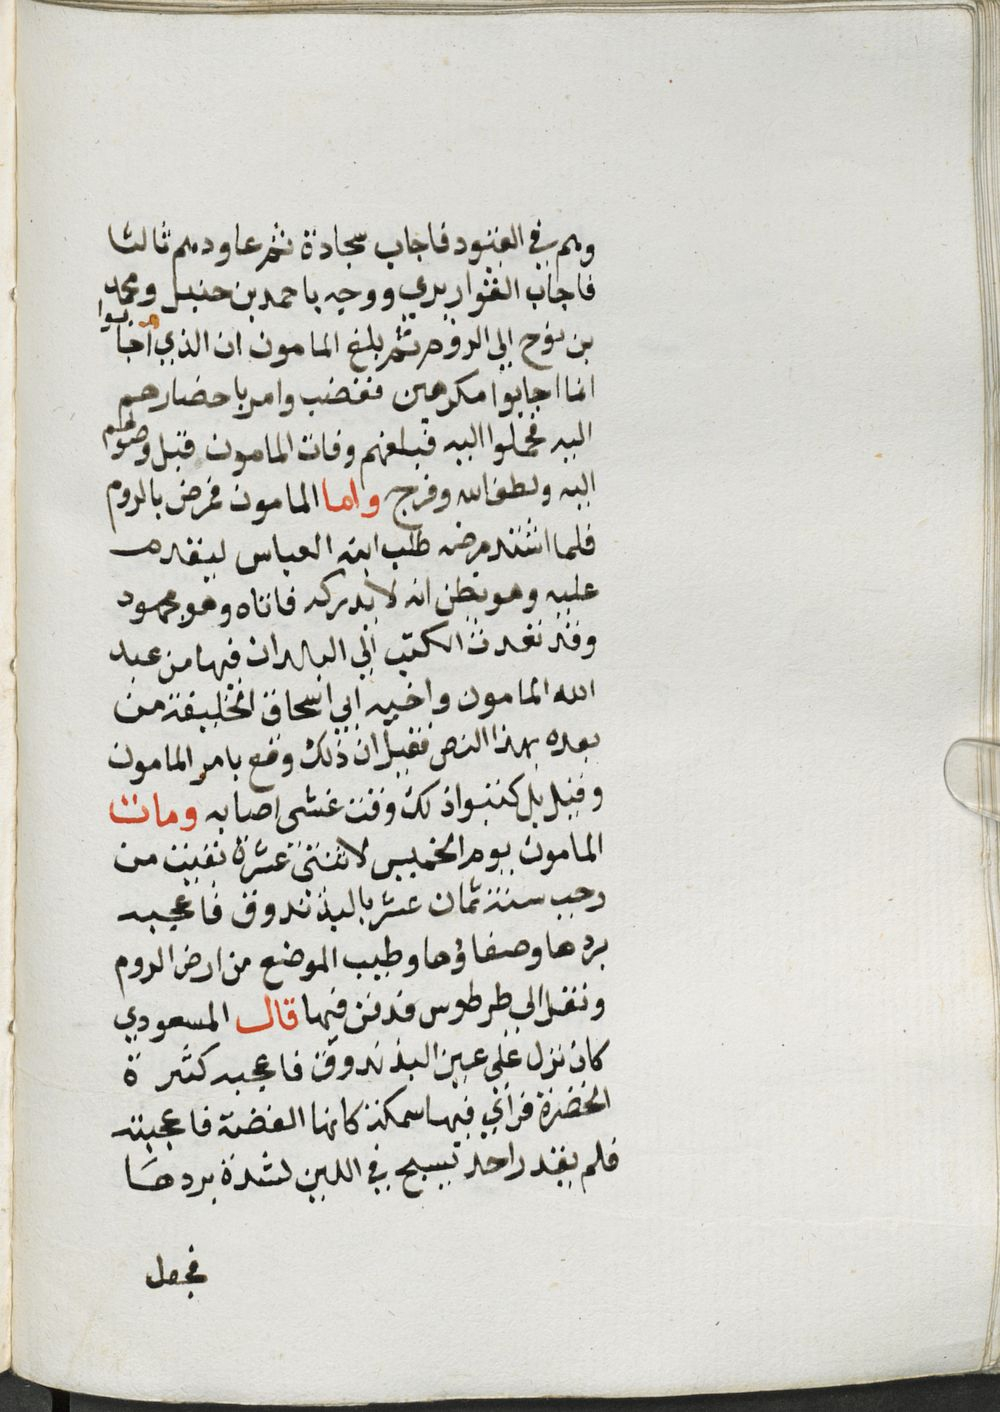 وهم في القيود فاجاب سجادة ثم عاودهم ثالثا
فاجاب القواريري ووجه باحمد بن حنبل ومحمد
بن نوح الي الروم ثم بلغ المامون ان الذي اجابوا
انما اجابوا مكرهين فغضب وامر باحضارهم
اليه فحملوا اليه فبلغهم وفات المامون قبل وصولهم
اليه ولطف الله وفرج واما المامون فمرض بالروم
فلما اشتد مرضه طلب ابنه العباس ليقدم
عليه وهو يظن انه لا يدركه فاتاه وهو مجهود
وقد نفدت الكتب الي البلدان فيها من عبد
الله المامون واخيه ابي اسحاق الخليفة من
بعده بهذا النص فقيل ان ذلك وقع بامر المامون
وقيل بل كتبوا ذلك وقت غشي اصابه ومات
المامون يوم الخميس لاثنتي عشرة بقيت من
رجب سنة ثمان عشر بالبذندوق فاعجبه
بردها وصفاؤها وطيب الموضع من ارض الروم
ونقل الي طرطوس فدفن فيها قال المسعودي
كان نزل علي عين البذندوق فاعجبه كثرة
الخضرة فراي فيها سمكة كانها الفضة فاعجبته
فلم يقدر احد يسبح في العين لشدة بردها
فجعل